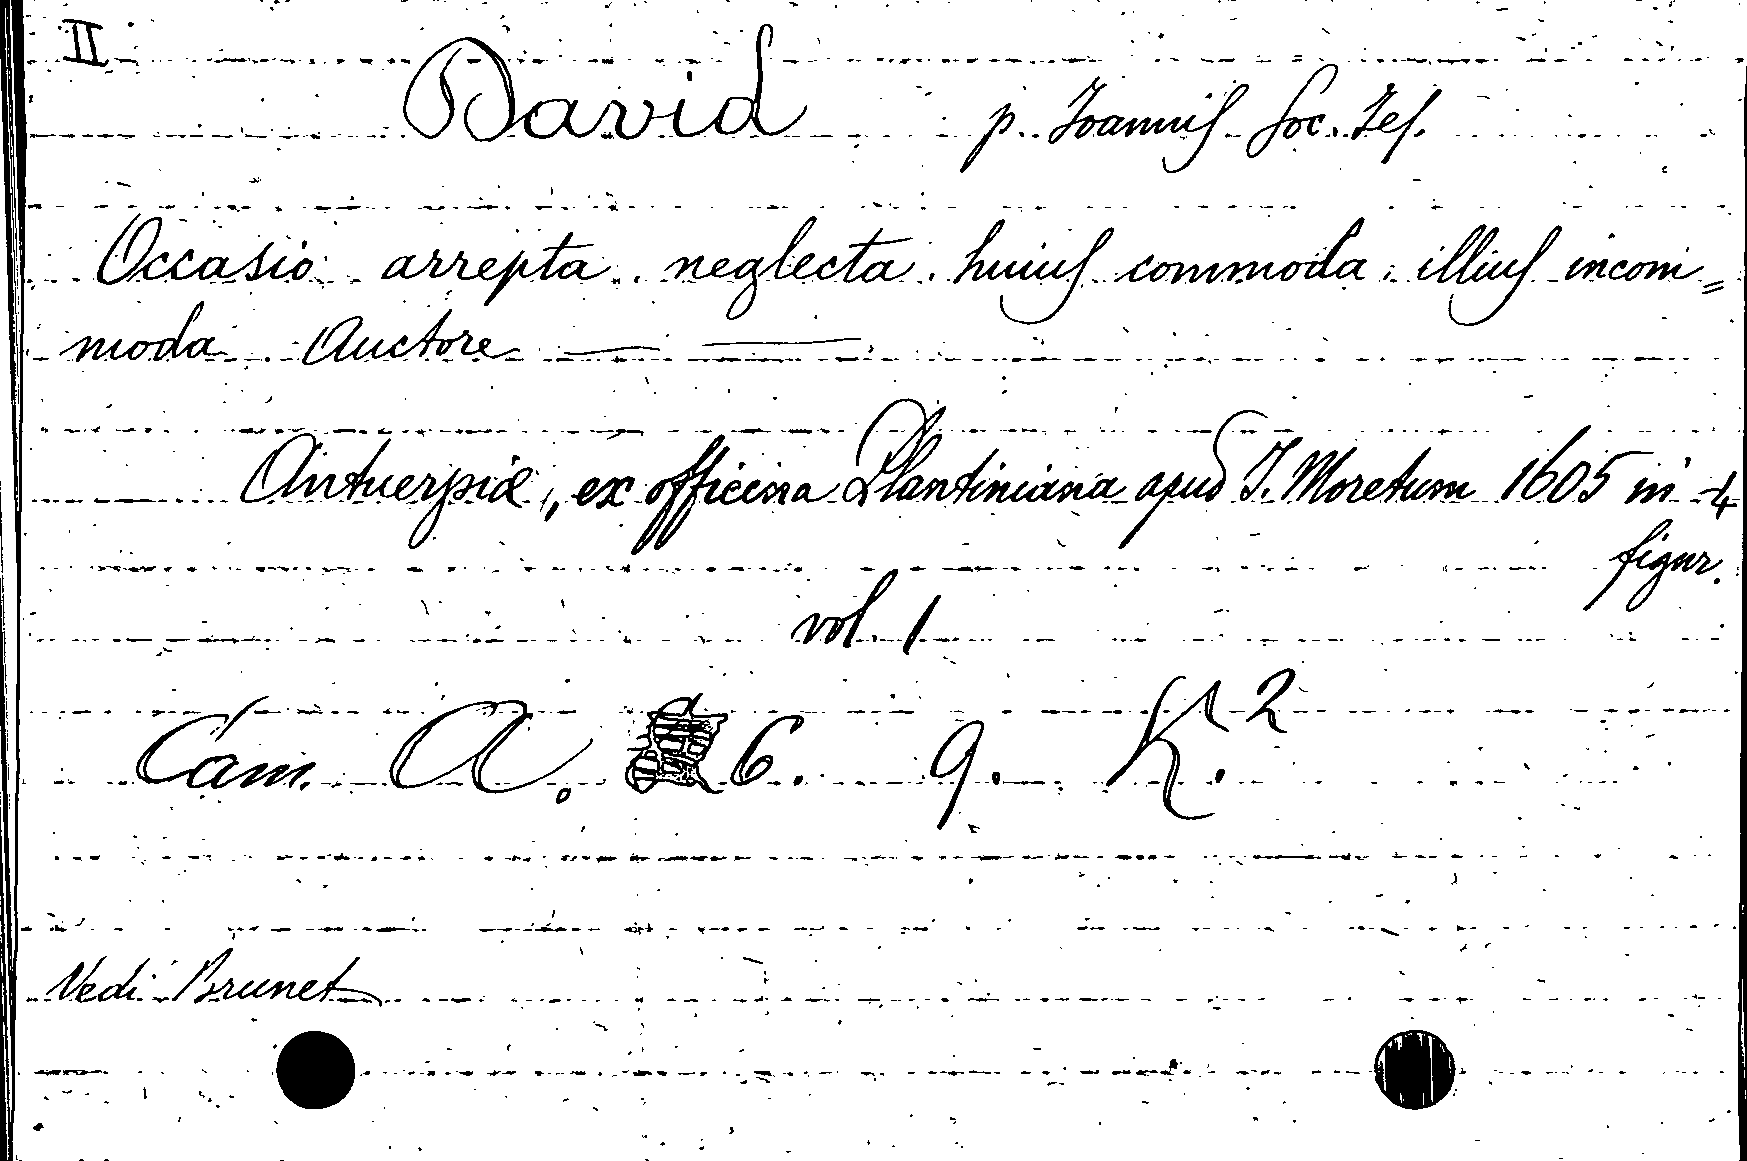 II
David p. Joannis Soc. Jes.
Occasio arrepta. neglecta. huius commoda: illius incom=
moda. Auctore — —
Antuerpiæ, ex officina Plantiniana apud J. Moretum 1605 in 4
figur.
vol. 1
Cam. A. 6. 9. K.2
Vedi Brunet